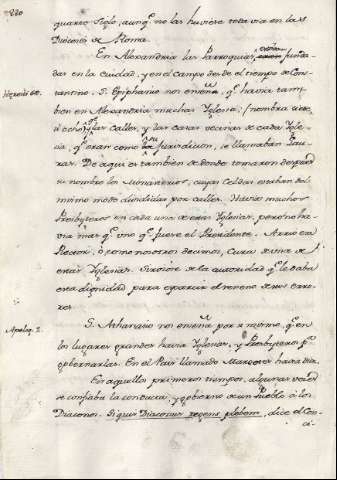 220
quarto siglo, aunqe. no las huviese todavia en las
Diocesis de Roma.
En Alexandria las Parroquias, funda-
das en la ciudad, y en el campo desde el tiempo de Cons-
tantino. S. Epiphanio nos enseña, qe. havia tam-
Heresis 60.
bien en Alexandria muchas Iglesias: (nombra siete,
ó ocho) y las calles, y las casas vecinas de cada Igle-
sia, qe. eran como su jurisdicion, se llamaban Lau-
ras. De aqui es tambien de donde tomaron despues
su nombre los Monasterios, cuyas Celdas estaban del
mismo modo divididas por calles. Havia muchos
Presbyteros en cada una de estas Iglesias, pero no ha-
via mas qe. uno qe. fuese el Presidente. Arrio era
Rector, ó como nosotros decimos, Cura de una de
estas Iglesias. Sirviose de la autoridad qe. le daba
esta dignidad para esparcir el veneno de sus erro-
res.
Apolog. 2.
S. Athanasio nos enseña por si mismo, qe. en
los lugares grandes havia Iglesias, y Presbyteros pa.
gobernarlas. En el Pais llamado Mareotes havia diez.
En aquellos primeros tiempos, algunas veces
se confiaba la conducta, y govierno de un Pueblo á los
Diaconos. Si quis Diaconus regens plebem, dice el Con-
ci-